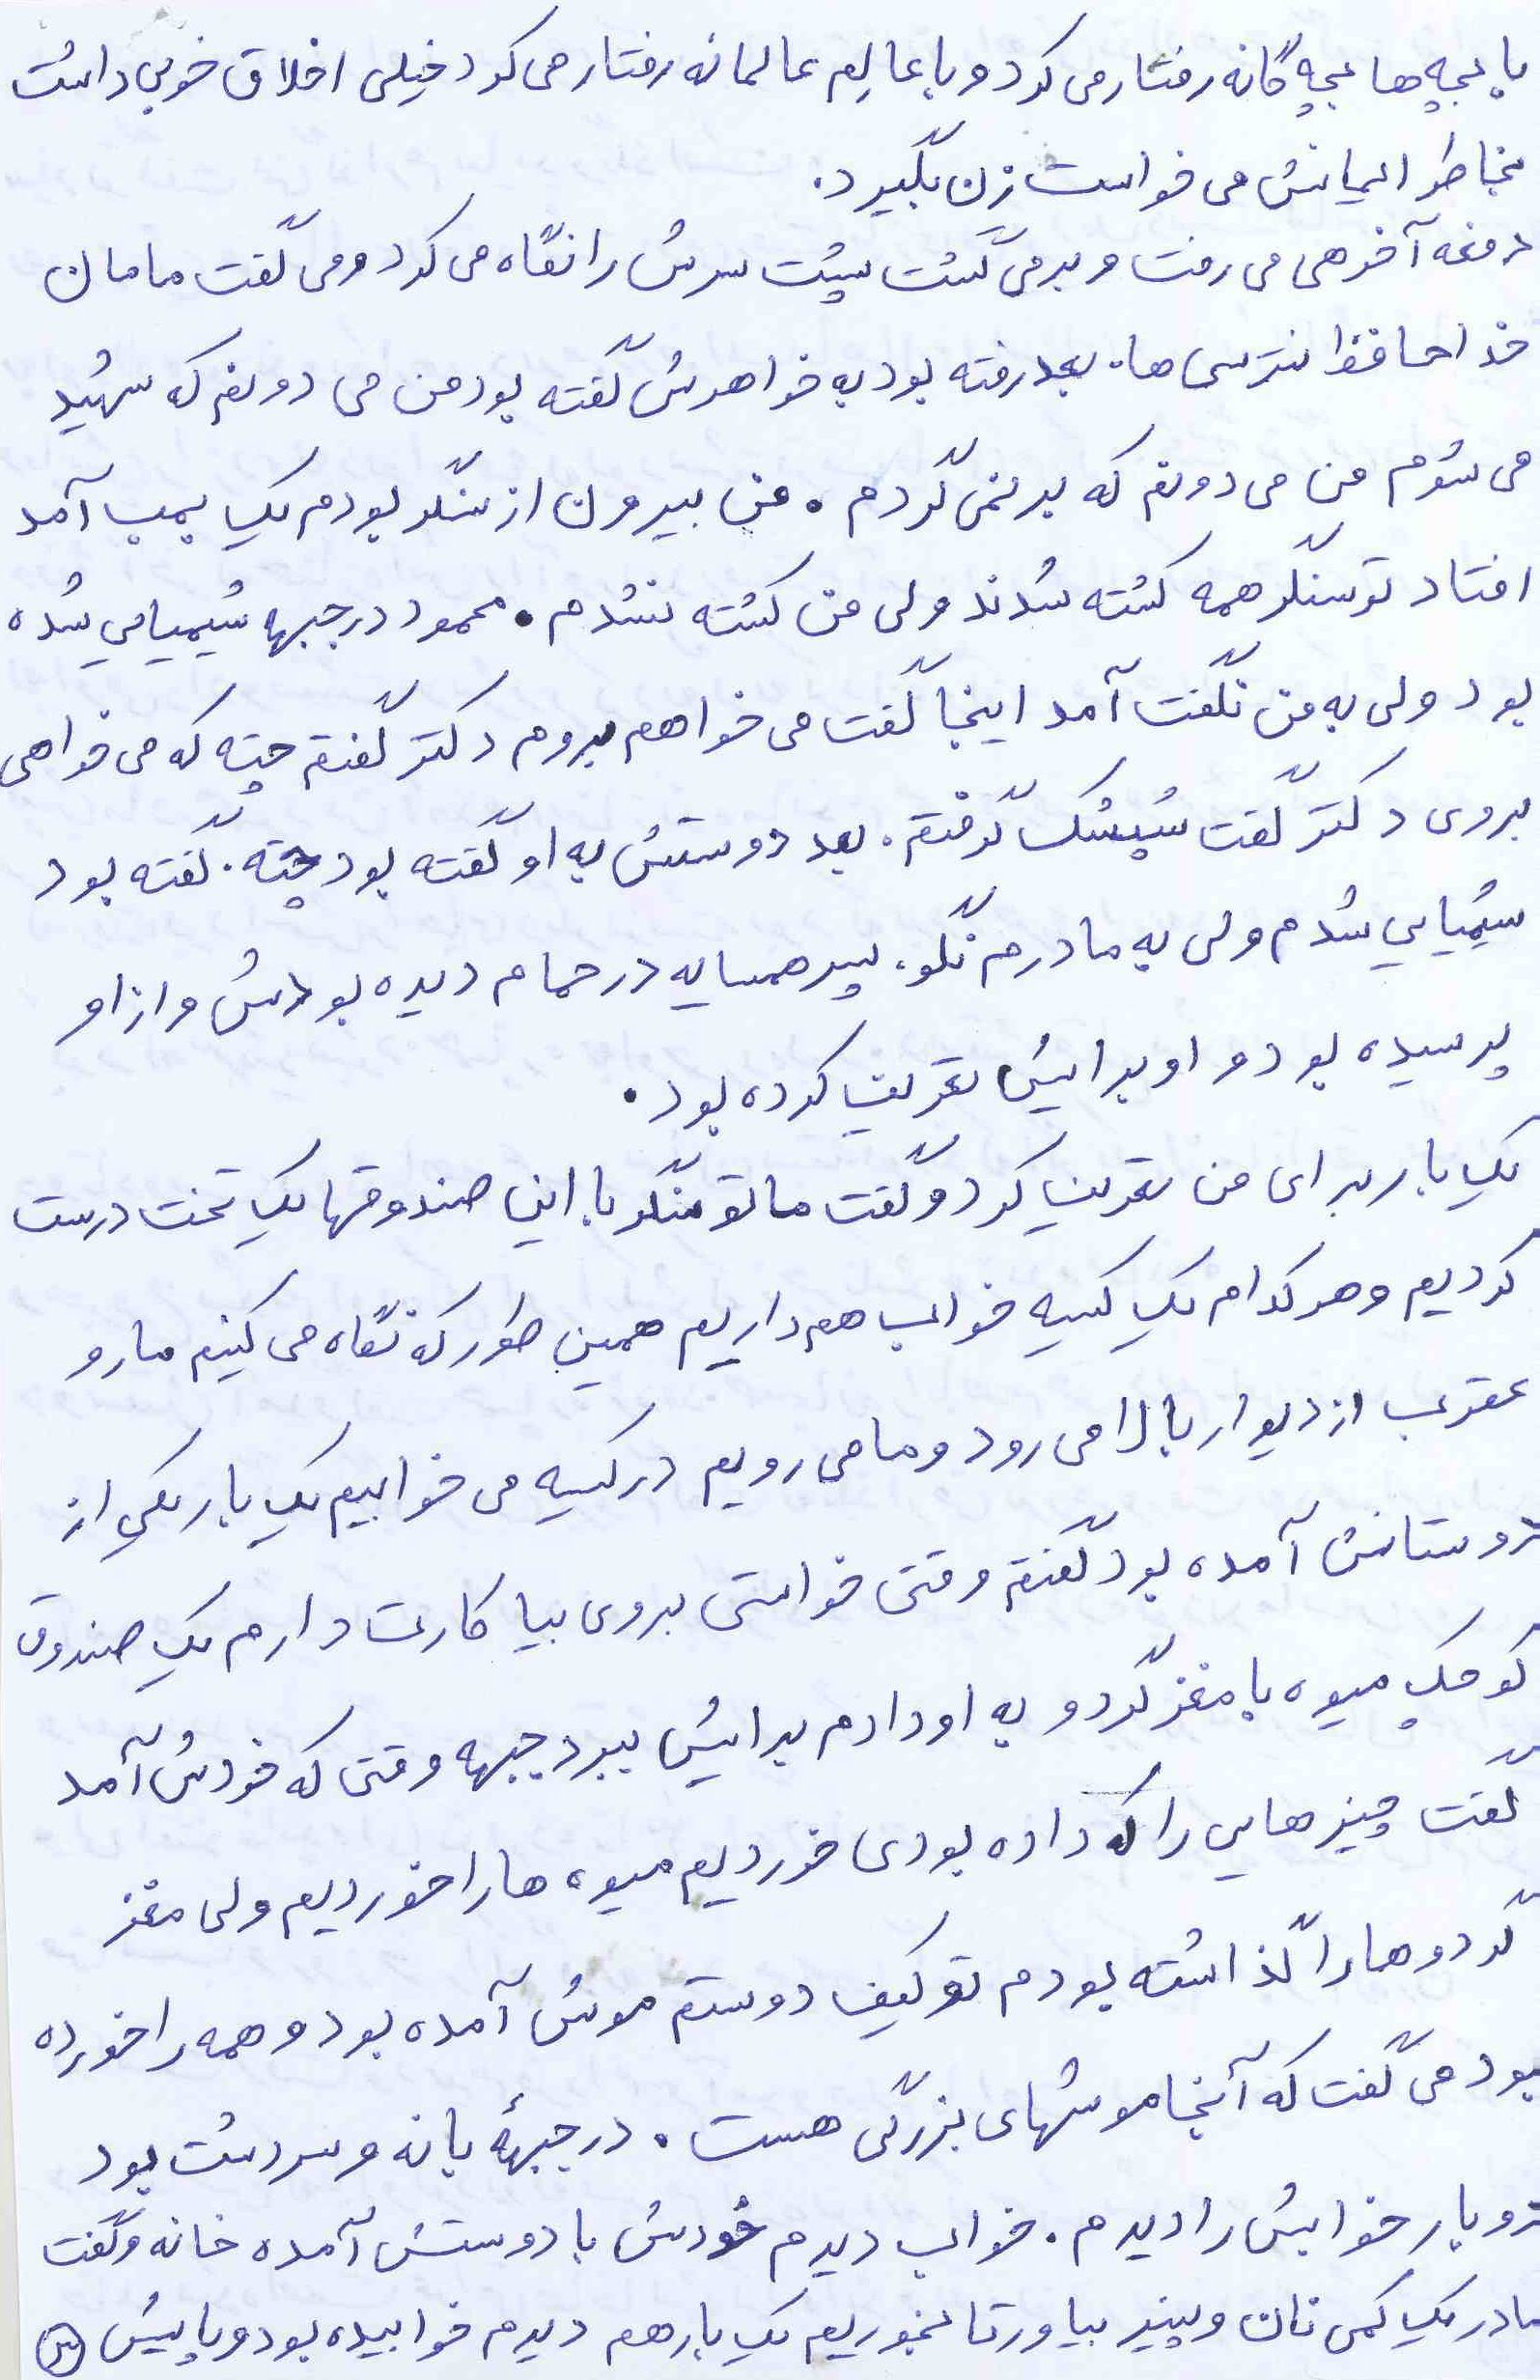 با بچه ها بچه گانه رفتار می کرد و با عالم عالمانه رفتار می کرد خیلی اخلاق خوبی داشت
بخاطر ایمانش می خواست زن بگیرد.
دفعه آخر هی می رفت و برمی گشت پشت سرش را نگاه می کرد و می گفت مامان
خداحافظ نترسی ها. بعد رفته بود به خواهرش گفته بود من می دونم که شهید
می شوم من می دونم که بر نمی گردم . من بیرون از سنگر بودم یک بمب آمد
افتاد تو سنگر همه کشته شدند ولی من کشته نشدم . محمود در جبهه شیمیایی شده
بود ولی به من نگفت آمد اینجا گفت می خواهم بروم دکتر گفتم چته که می خواهی
بروی دکتر گفت شپشک گرفتم . بعد دوستش به او گفته بود چته . گفته بود
شیمیایی شدم ولی به مادرم نگو، پسر همسایه در حمام دیده بودش و از او
پرسیده بود و او برایش تعریف کرده بود .
یک بار برای من تعریف کرد و گفت ما تو سنگر با این صندوقها یک تخت درست
کردیم و هر کدام یک کیسه خواب هم داریم همین طور که نگاه می کنیم مار و
عقرب از دیوار بالا می رود و ما می رویم در کیسه می خوابیم یک بار یکی از
دوستانش آمده بود گفتم وقتی خواستی بروی بیا کارت دارم یک صندوق
کوچک میوه با مغز گردو به او دادم برایش ببرد جبهه وقتی که خودش آمد
گفت چیزهایی را که داده بودی خوردیم میوه ها را خوردیم ولی مغز
گردوها را گذاشته بودم تو کیف دوستم موش آمده بود و همه را خورده
بود می گفت که آنجا موشهای بزرگی هست . در جبههٔ بانه و سردشت بود
دو بار خوابش را دیدم . خواب دیدم خودش با دوستش آمده خانه و گفت
مادر یک کمی نان و پنیر بیاور تا بخوریم یک بار هم دیدم خوابیده بود و پاپیش